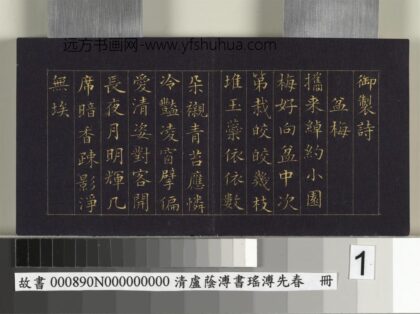 远方书画网-www.yfshuhua.com
御製詩
盆梅
攜來綽約小園
梅好向盆中次
第栽皎皎幾枝
堆玉蘂依依數
朵襯青苔應憐
冷豔凌窗擘偏
愛清姿對客開
長夜月明輝几
席暗香疎影淨
無埃
1
故書 000890N000000000 清盧蔭溥書瑤溥先春 冊